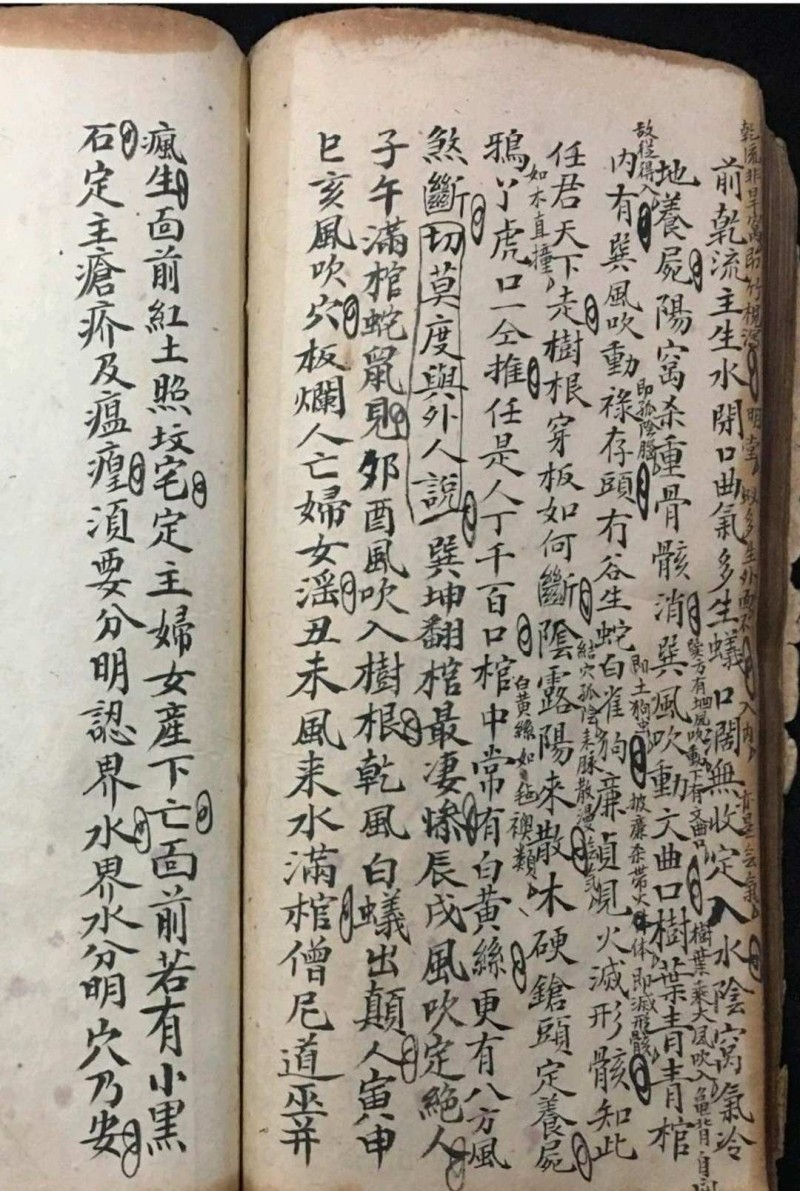 乾流非旱窩即竹梘瀉 明堂 蚁多生外面 入內
前乾流主生水閉口曲氣多生蟻口闊無收定入水陰窩氣冷
巽方有地風吹動下有文曲口 樹葉乘大風吹入
地養屍陽窩杀重骨骸消巽風吹動文曲口樹葉青青棺
故從得入 即孤陰腦 即土狗虫 披廉杀帶火 体即滅形骸
內有巽風吹動祿存頭冇谷生蛇白雀狗廉貞見火滅形骸知此
結穴孤陰来脉散漫
任君天下走樹根穿板如何斷陰露陽來散木硬鎗頭定養屍
如木直撞 白黃絲如毡襖類
鴉丫虎口一仝推任是人丁千百口棺中常有白黃絲更有八方風
煞斷切莫度與外人說一巽坤翻棺最凄慘辰戌風吹定絕人
子午滿棺蛇鼠見夘酉風吹入樹根乾風白蟻出顛人寅申
巳亥風吹穴板爛人亡婦女滛丑未風来水滿棺僧尼道巫并
瘋生面前紅土照坟宅定主婦女産下亡面前若有小黑
石定主瘡疥及瘟瘴須要分明認界水界水分明穴乃安